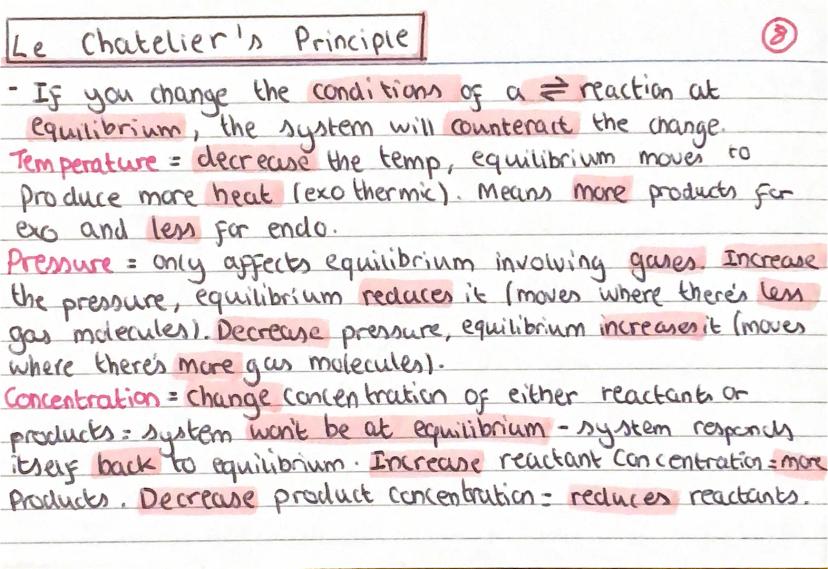 Le Chatelier's Principle
8
- If you change the conditions of a ⇌ reaction at
equilibrium, the system will counteract the change.
Temperature = decrease the temp, equilibrium moves to
produce more heat (exothermic). Means more products for
exo and less for endo.
Pressure = only affects equilibrium involving gases. Increase
the pressure, equilibrium reduces it (moves where there's less
gas molecules). Decrease pressure, equilibrium increases it (moves
where there's more gas molecules).
Concentration = change concentration of either reactants or
products = system won't be at equilibrium - system responds
itself back to equilibrium. Increase reactant concentration = more
products. Decrease product concentration = reduces reactants.